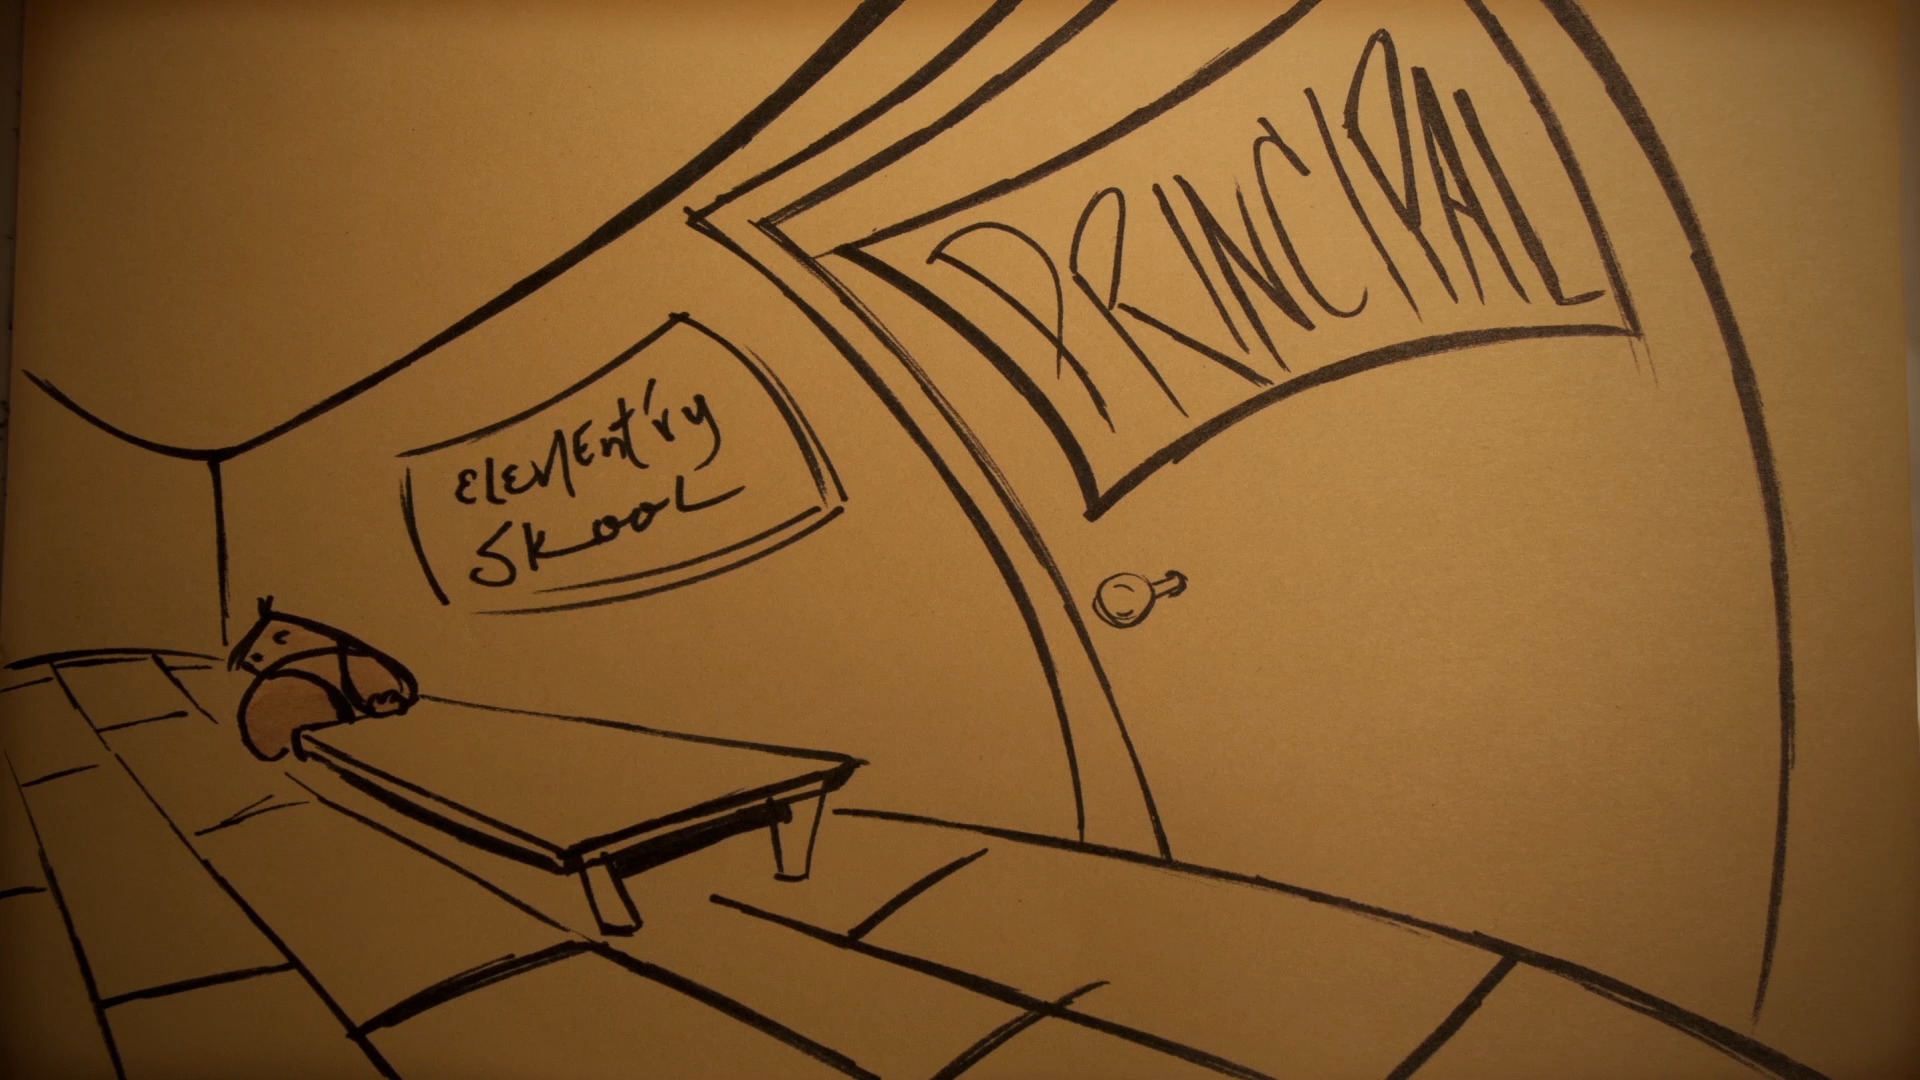 ElemEnt'ry
SkooL
PRINCIPAL